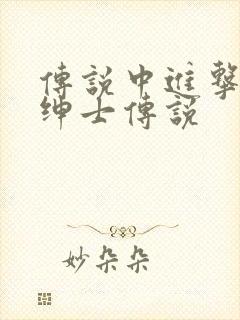 傳說中進擊
紳士傳說
妙朵朵